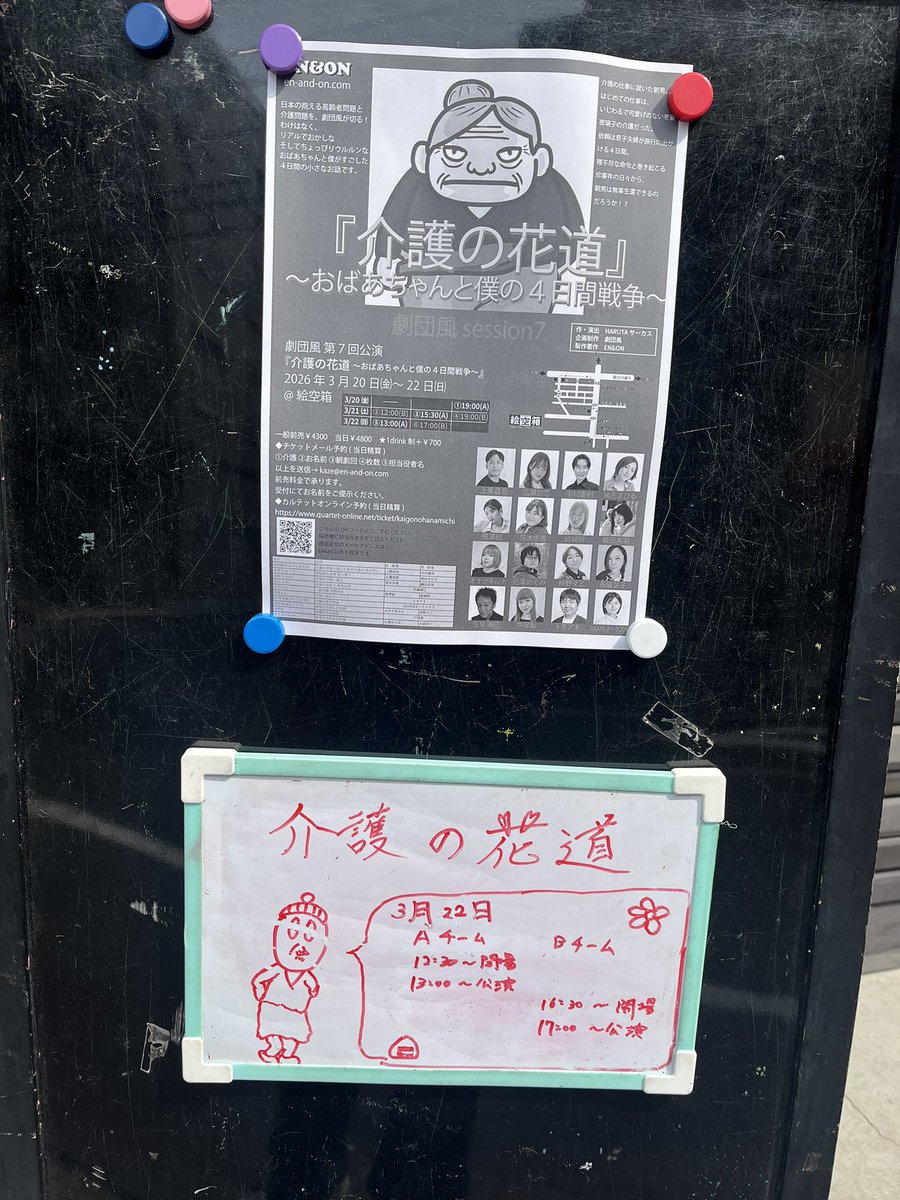 EN&ON
en-and-on.com
日本の抱える高齢者問題と
介護問題を、劇団風が切る!
わけはなく、
リアルでおかしな
そしてちょっぴりウルルンな
おばあちゃんと僕がすごした
4日間の小さなお話です。
介護の仕事に就いた朝男。
はじめての仕事は、
いじわるで可愛げのない老
夜璃子の介護だった。
依頼は息子夫婦が旅行に出か
ける4日間。
理不尽な命令と巻き起こる
珍事件の日々から、
朝男は無事生還できるの
だろうか!?
『介護の花道』
〜おばあちゃんと僕の4日間戦争〜
劇団風 session7
作・演出 HARUTAサーカス
企画制作 劇団風
製作著作 EN&ON
劇団風 第7回公演
『介護の花道 〜おばあちゃんと僕の4日間戦争〜』
2026年3月20日(金)〜22日(日)
@絵空箱
3/20(金) ―― ①19:00(A)
3/21(土) ②12:00(B) ③15:30(A) ④19:00(B)
3/22(日) ⑤13:00(A) ⑥17:00(B)
絵空箱
一般前売¥4300 当日¥4800 ★1drink制+¥700
◆チケットメール予約(当日精算)
①介護 ②お名前 ③観劇回 ④枚数 ⑤担当役者名
以上を送信→kaze@en-and-on.com
前売料金で承ります。
受付にてお名前をご提示ください。
◆カルテットオンライン予約(当日精算)
https://www.quartet-online.net/ticket/kaigonohanamichi
こちらのQRコードよりご予約ください。
Gmail以外を推奨です。
介護の花道
3月22日
Aチーム
Bチーム
12:30〜開場
13:00〜公演
16:30〜開場
17:00〜公演